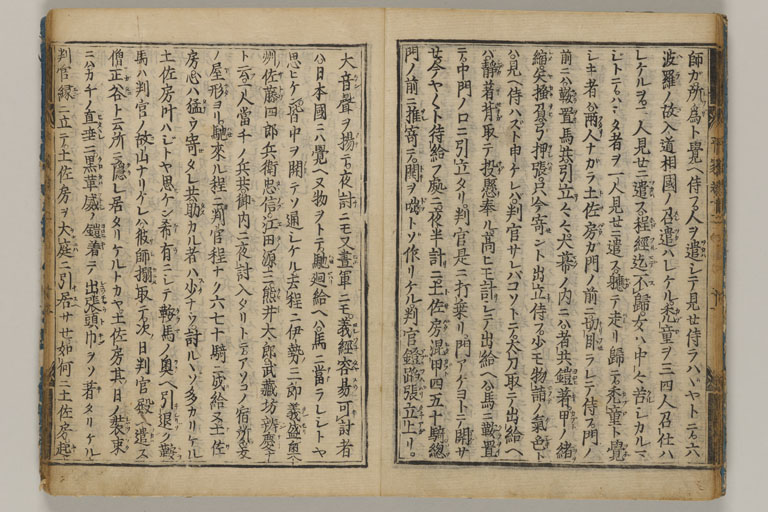 師カ所爲ト覺ヘ侍ル人ヲ遣シテ見セ侍ラハヤトテ六
波羅ノ故入道相國ノ召遣ハレケル禿童ヲ三四人召仕ハ
レケルヲ二人見セニ遣ス程經迄不歸女ハ中々苦シカルマ
シトテハシタ者ヲ一人見セニ遣ス軈テ走リ歸テ禿童ト覺
シキ者ハ兩人ナカラ土佐房カ門ノ前ニ切臥ラレテ侍フ門ノ
前ニハ鞍置馬共引立々々大幕ノ内ニハ者共鎧著甲ノ緒
縮矢掻負弓押張只今寄ント出立侍フ少モ物詣ノ氣色ト
ハ見ヘ侍ハスト申ケレバ判官サレバコソトテ太刀取テ出給ヘ
ハ靜著背取テ投懸奉リ高ヒモ計シテ出給ヘハ馬ニ鞍置
テ中門ノ口ニ引立タリ判官是ニ打乘リ門アケヨトテ開サ
セ今ヤ〱ト待給フ處ニ夜半計ニ土佐房混甲四五十騎總
門ノ前ニ推寄テ閧ヲ咄トソ作リケル判官鐙蹈張立上リ。
大音聲ヲ揚テ夜討ニモ又晝軍ニモ義經容易可討者
ハ日本國ニハ覺ヘヌ物ヲトテ馳廻給ヘハ馬ニ當ラレシトヤ
思ヒケン皆中ヲ開テソ通シケル去程ニ伊勢三郎義盛奧
州佐藤四郎兵衛忠信江田源三熊井太郎武藏坊辨慶ナ
ト云一人當千ノ兵共御内ニ夜討入タリトテアソコノ宿所爰
ノ屋形ヨリ馳來ル程ニ判官程ナク六七十騎ニ成給又土佐
房心ハ猛ウ寄タレ共助カル者ハ少ナウ討ルヽソ多カリケル
土佐房叶ハシトヤ思ケン希有ニシテ鞍馬ノ奧ヘ引退ク鞍
馬ハ判官ノ故山ナリケレハ彼師搦取テ次日判官殿ヘ遣ス
僧正谷ト云所ニ隱レ居タリケルトカヤ土佐房其日ノ裝束
ニハカチノ直垂ニ黒革威ノ鎧着テ出張頭巾ヲソ著タリケル
判官縁ニ立テ土佐房ヲ大庭ニ引居サセ如何ニ土佐房起